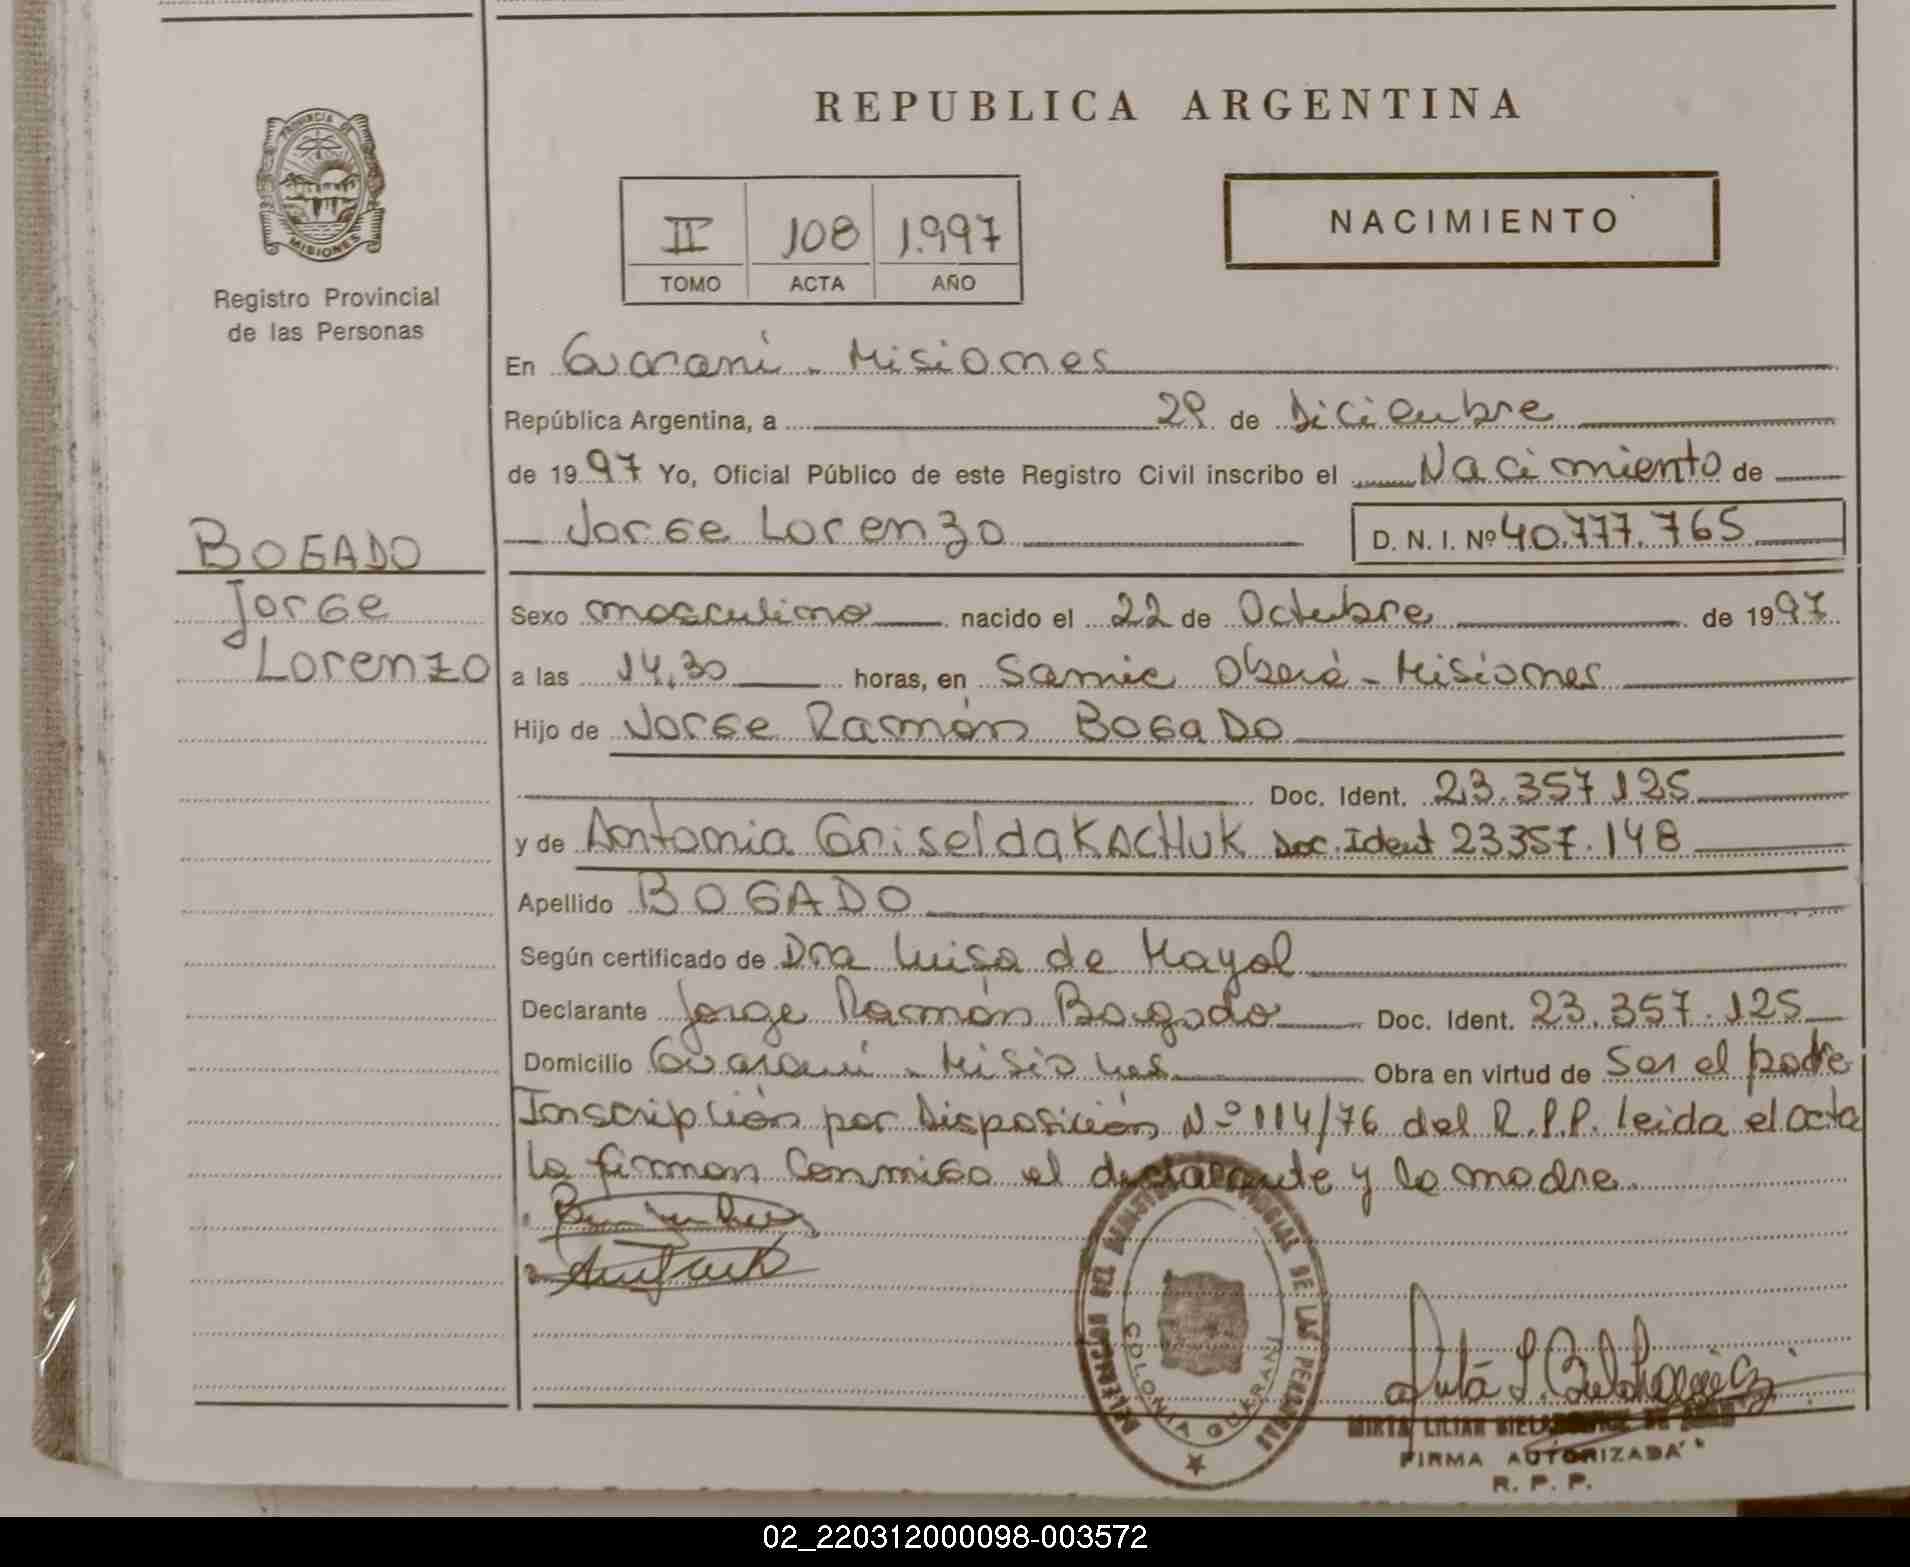 REPUBLICA ARGENTINA
PROVINCIA DE
MISIONES
Registro Provincial
de las Personas
II 108 1.997
TOMO ACTA AÑO
NACIMIENTO
En Guarani - Misiones
República Argentina, a 29 de Diciembre
de 1997 Yo, Oficial Público de este Registro Civil inscribo el Nacimiento de
Jorge Lorenzo D. N. I. Nº 40.777.765
BOGADO
Jorge
Lorenzo
Sexo masculino nacido el 22 de Octubre de 1997
a las 14,30 horas, en Samic Oberá - Misiones
Hijo de Jorge Ramón Bogado
Doc. Ident. 23.357.125
y de Antonia Griselda KACHUK Doc. Ident 23357.148
Apellido BOGADO
Según certificado de Dra Luisa de Mayol
Declarante Jorge Ramón Bogado Doc. Ident. 23.357.125
Domicilio Guarani - Misiones Obra en virtud de Ser el padre
Inscripción por Disposición Nº 114/76 del R.P.P. leida el acta
la firman Conmigo el declarante y la madre.
DE LAS PERSONAS
COLONIA GUARANI
MIRTA LILIAN
FIRMA AUTORIZADA
R. P. P.
02_220312000098-003572